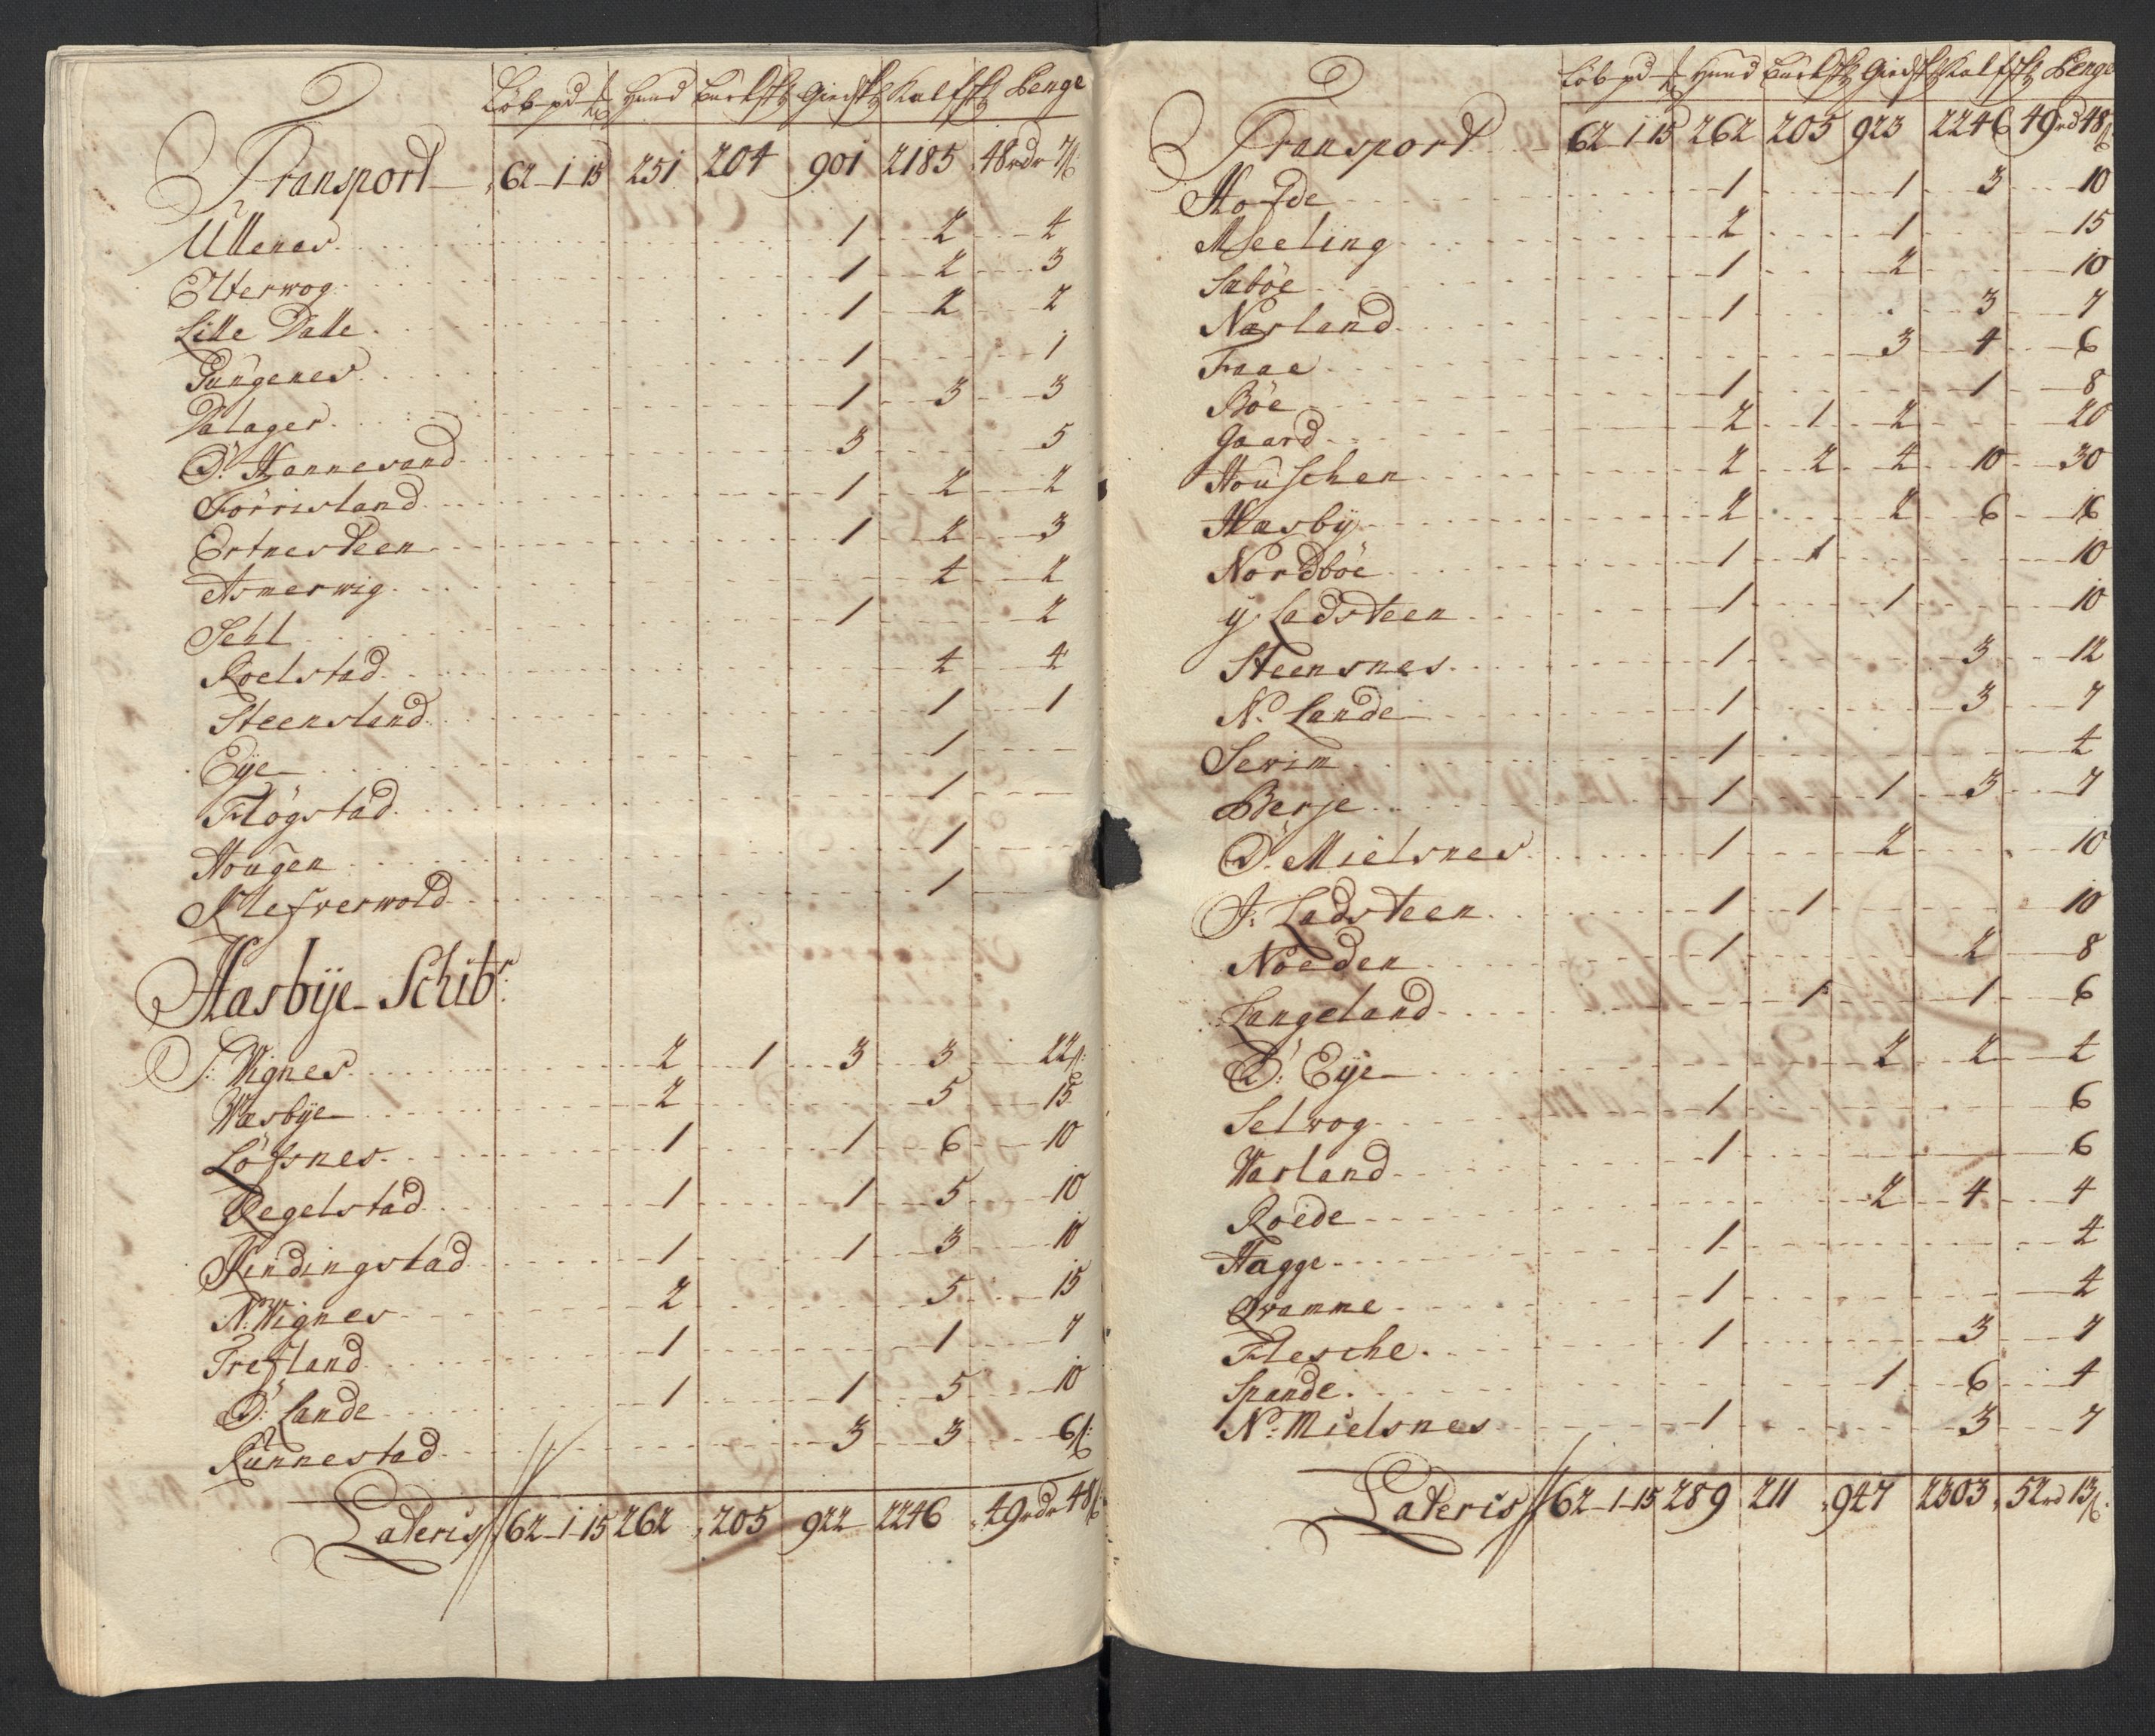 Löb pd Hund bucksk Giedsk Kalfsk Penge
Transport 62-1-15 251 204 901 2185 48rdr 7ß
Ullenes 1 2 4
Elterwog 1 2 3
Lille Dalle 1 2 2
Pungenes 1 1
Dalager 1 3 3
Ö: Hannesand 3 5
Förrisland 1 2 2
Ertnesteen 1 2 3
Asmerwig 4 2
Sehl 1 2
Roelstad 4 4
Steensland 1 1
Eÿe 1
Flögstad 1
Hougen 1
Klefverwold 1
Hasbÿe Schibr:
S: Wignes 2 1 3 3 22ß
Wasbÿe 2 5 15
Löfsnes 1 1 6 10
Regelstad 1 1 5 10
Kindingstad 1 1 3 10
N: Wignes 2 5 15
Trefland 1 1 7
Ö: Lande 1 1 5 10
Runnestad 3 3 6ß
Lateris 62-1-15 262 205 922 2246 49rdr 48ß
Löb pd Hund bucksk Giedsk Kalfsk Penge
Transport 62-1-15 262 205 923 2246 49rd 48ß
Hofde 1 1 3 10
Meeling 2 1 15
Saböe 1 2 10
Nærland 1 3 7
Fraae 3 4 6
Böe 1 1 8
Gaard 2 1 2 20
Houschen 2 2 4 10 30
Hasbÿ 2 2 6 16
Nordböe 1 1 10
ÿ. Ladsteen 1 1 10
Steensnes 1 3 12
N. Lande 1 3 7
Sewim 1 4
Berje 1 1 3 7
Ö: Mielsnes 1 2 10
I: Ladsteen 1 1 10
Noeden 1 2 8
Langeland 1 1 6
Ö: Eÿe 2 2 4
Selwog 1 6
Warland 1 6
Roede 2 4 4
Hagge 1 4
Qvamme 1 4
Flesche 1 3 7
Spande 1 6 4
N: Mielsnes 1 3 7
Lateris 62-1-15 289 211 947 2303 52rd 13ß